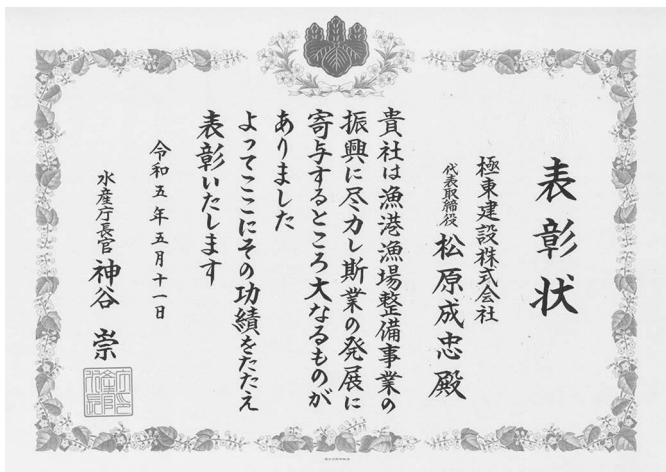 表彰状
極東建設株式会社
代表取締役 松原成忠殿
貴社は漁港漁場整備事業の
振興に尽力し斯業の発展に
寄与するところ大なるものが
ありました
よってここにその功績をたたえ
表彰いたします
令和五年五月十一日
水産庁長官 神谷崇